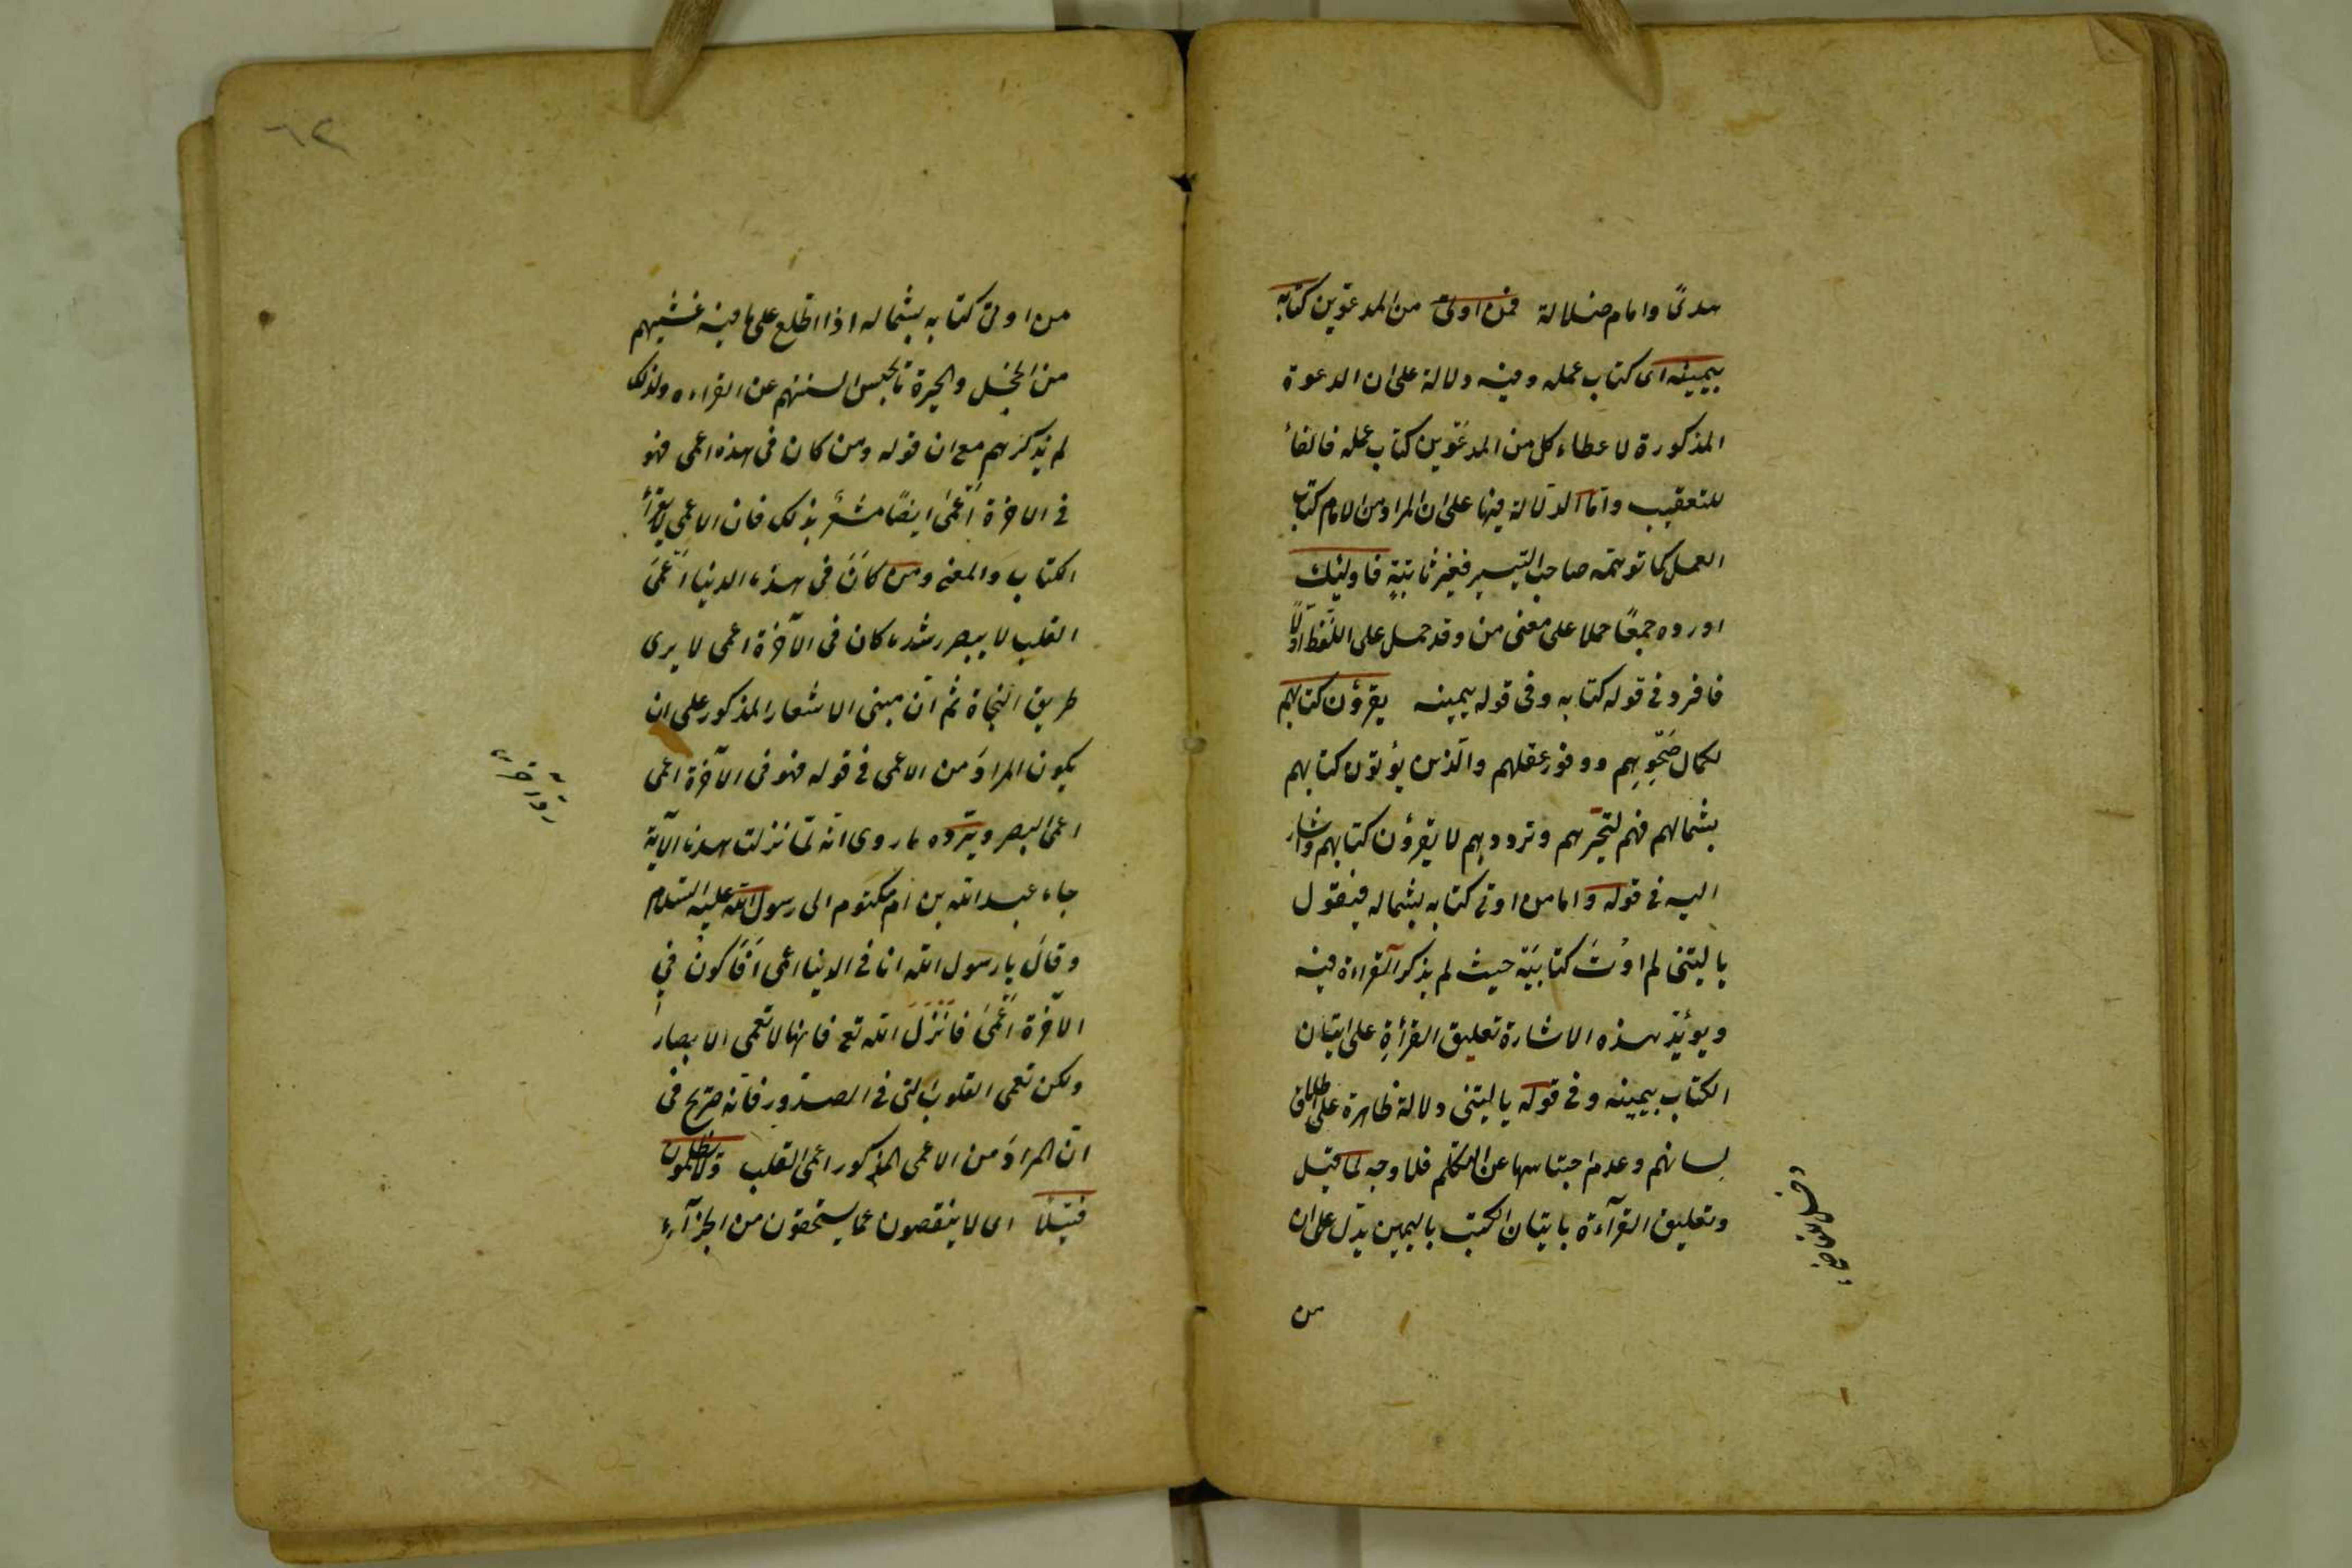 هدىً وامام ضلالة فمن اوتى من المدعوّين كتابه
بيمينه اى كتاب عمله وفيه دلالة على ان الدعوة
المذكورة لاعطاء كل من المدعوّين كتاب عمله فالفاء
للتعقيب وامّا الدّلالة فيها على ان المراد من الامام كتاب
العمل كما توهّمه صاحب التيسير فغير ثابتةٍ فاولئك
اورده جمعًا حملا على معنى من وقد حمل على اللفظ اوّلًا
فافرد فى قوله كتابه وفى قوله بيمينه يقرؤن كتابهم
لكمال صَحْوِهِم ووفور عقلهم والّذين يؤتون كتابهم
بشمالهم فهم لتحيّرهم وترددهم لا يقرؤن كتابهم واشار
اليه فى قوله واما من اوتى كتابه بشماله فيقول
يا ليتنى لم اوت كتابيَه حيث لم يذكر القراءة فيه
ويؤيّد هذه الاشارة تعليق القرأةِ على ايتان
الكتاب بيمينه وفى قوله يا ليتنى دلالة ظاهرة على اطلاق
لسانهم وعدم احتباسها عن التكلّم فلا وجه لما قيل
وتعليق القرآءة بايتان الكتب باليمين يدّل على ان
من
٦٢
من اوتى كتابه بشماله اذا اطّلع على ما فيه غشيهم
من الخجل والحيرة ما يحبس السنتهم عن القراءه ولذلك
لم يذكرهم مع ان قوله ومن كان فى هذه اعمى فهو
فى الاخرة اَعْمَى ايضًا مشعر بذلك فان الاعمى لا يقرأ
الكتاب والمعنى ومن كانَ فى هذه الدنيا اَعْمَى
القلب لا يبصر رشده كان فى الآخرة اعمى لا يرى
طريق النّجاة ثم انّ مبنى الاشعار المذكور على ان
يكون المرادَ من الاعمى فى قوله فهو فى الآخرة اعمى
اعمى البصر ويردّه ما روى انّه لمّا نزلت هذه الآية
جاء عبد الله بن ام مكتوم الى رسول الله عليه السّلام
وقالَ يا رسول الله انا فى الدنيا اعمى اَفَاَكونُ فى
الآخرة اَعْمَى فَاَنْزَلَ الله تع فانها لا تعمى الابصار
ولكن تعمى القلوب التى فى الصدور فانّه صريح فى
انّ المرادَ من الاعمى المذكور اعمى القلب ولا يظلمون
فتيلًا اى لا ينقصون عما يستحقون من الجزآء